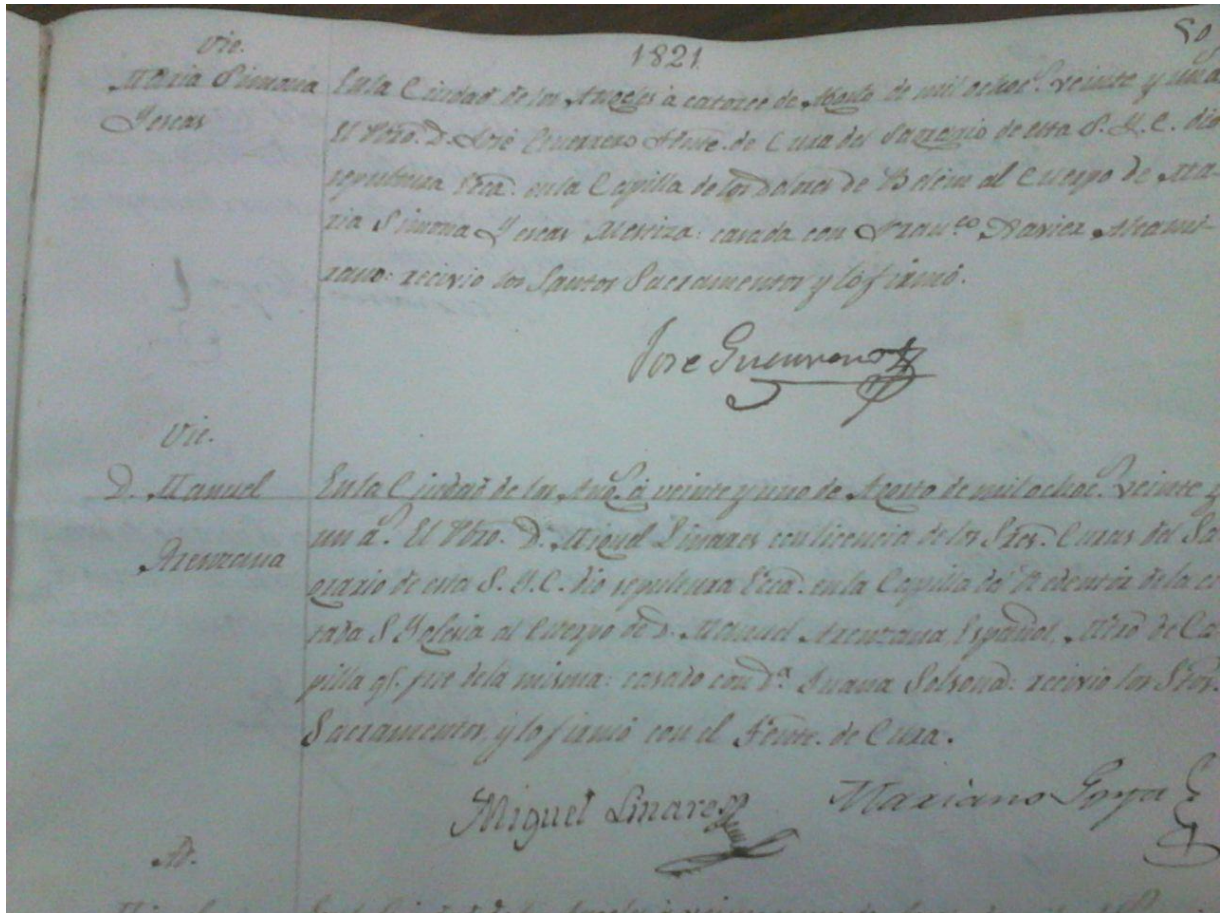 1821
50
Vic.
Maria Simona
Yescas
En la Ciudad de los Angeles à catorce de Agosto de mil ochoc.s veinte y un a
El Pbro. D. José Guerrero Thte. de Cura del Sagrario de esta S. Y. C. dio
sepultura Ecca. en la Capilla de los dolores de Belem al Cuerpo de Ma-
ria Simona Yescas Mestiza: casada con Fran.co Xavier Altami-
rano: recivio los Santos Sacramentos y lo firmó.
Jose Guerrero
Vic.
D. Manuel
Arenzana
En la Ciudad de los Ang.s à veinte y uno de Agosto de mil ochoc.s veinte y
un a.s El Pbro. D. Miguel Linares con licencia de los Sres. Curas del Sa
grario de esta S. Y. C. dio sepultura Ecca. en la Capilla del Redentór de la ci
tada S Yglesia al Cuerpo de D. Manuel Arenzana Español, Mtro de Ca
pilla q.e fue de la misma: casado con D.a Juana Solsona: recivio los Stos.
Sacramentos, y lo firmó con el Tente. de Cura.
Miguel Linares
Mariano Goya